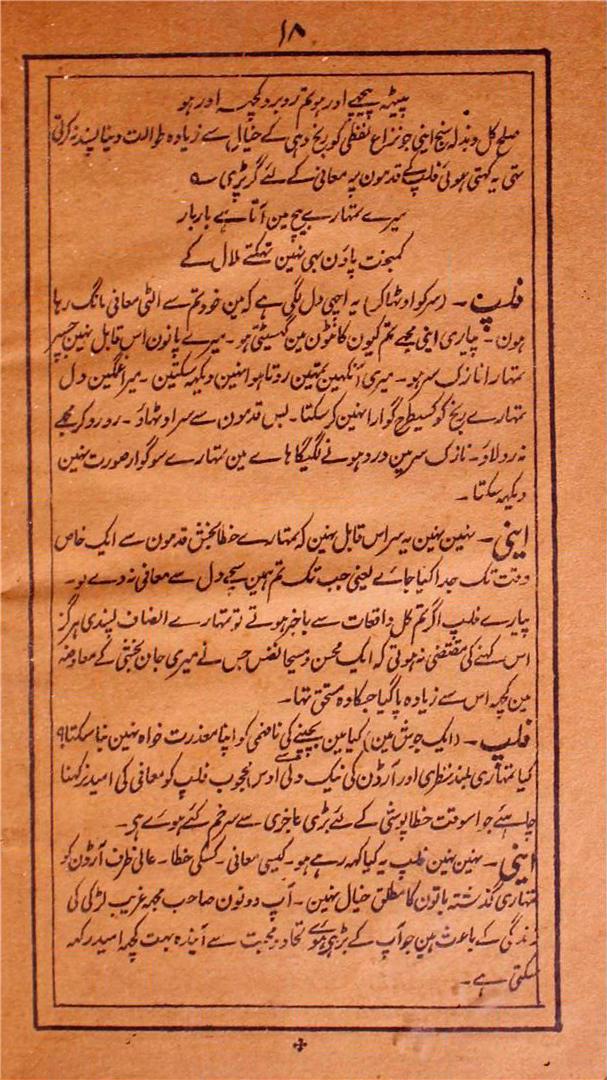 ١٨
پیٹھ پیچھے اور ہو تم روبرو کچھ اور ہو
صلح کل و بذلہ سنج اینی جو نزاع لفظی کو رنج دہی کے خیال سے زیادہ طوالت دینا پسند نہ کرتی
تہی یہ کہتی ہوئی فلپ کے قدمون پہ معافی کے لئے گر پڑی ؎
میرے تمہارے بیچ مین آتا ہے بار بار
کمبخت پاؤن بہی نہین تہکتے ملال کے
فلپ ۔ (سر کو اوٹھا کر) یہ اچہی دل لگی ہے کہ مین خود تم سے الٹی معافی مانگ رہا
ہون ۔ پیاری اینی مجہے تم کیون کانٹون مین گہسیٹتی ہو ۔ میرے پانون اس قابل نہین جسپر
تمہارا نازک سر ہو ۔ میری آنکہین تمہین روتا ہوا نہین دیکہہ سکتین ۔ میرا غمگین دل
تمہارے رنج کو کسیطرح گوارا نہین کر سکتا ۔ بس قدمون سے سر اوٹھاؤ ۔ رو رو کر مجہے
نہ رولاؤ ۔ نازک سر مین درد ہونے لگیگا ہاے مین تمہارے سوگوار صورت نہین
دیکہہ سکتا ۔
اینی ۔ نہین نہین یہ سر اس قابل نہین کہ تمہارے خطا بخش قدمون سے ایک خاص
وقت تک جدا کیا جاے یعنی جب تک تم ہمین سچے دل سے معافی نہ دے لو ۔
پیارے فلپ اگر تم کل واقعات سے باخبر ہوتے تو تمہارے انصاف پسندی ہرگز
اس کہنے کی مقتضی نہ ہوتی کہ ایک محسن و مسیحا نفس جس نے میری جان بخشی کے معاوضہ
مین کچہہ اس سے زیادہ پا گیا جسکا وہ مستحق تہا ۔
فلپ ۔ (ایک جوش مین) کیا مین بچپنے کی نافہمی کو اپنا معذرت خواہ نہین بنا سکتا؟
کیا تمہاری بلند نظری اور آرڈن کی نیک دلی سے اوس محجوب فلپ کو معافی کی امید نرکہنا
چاہئے جو اسوقت خطا پوشی کے لئے بڑی عاجزی سے سر خم کئے ہوے ہی ۔
اینی ۔ نہین نہین فلپ یہ کیا کہہ رہے ہو ۔ کیسی معافی ۔ کسکی خطا ۔ عالی ظرف آرڈن کو
تمہاری گذشتہ باتون کا مطلق خیال نہین ۔ آپ دونون صاحب مجہہ غریب لڑکی کی
زندگی کے باعث ہین جو آپ کے بڑہی ہوے اتحاد و محبت سے آیندہ بہت کچہہ امید رکہہ
سکتی ہے ۔